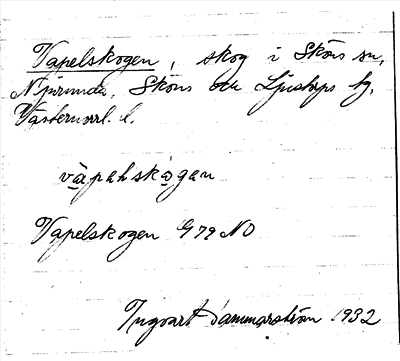 Vapelskogen, skog i Sköns sn,
Njurunda, Sköns och Ljustorps tg,
Västernorrl. l.
vàpahskògan
Vapelskogen G 79 NO
Ingvart Hammarström 1932